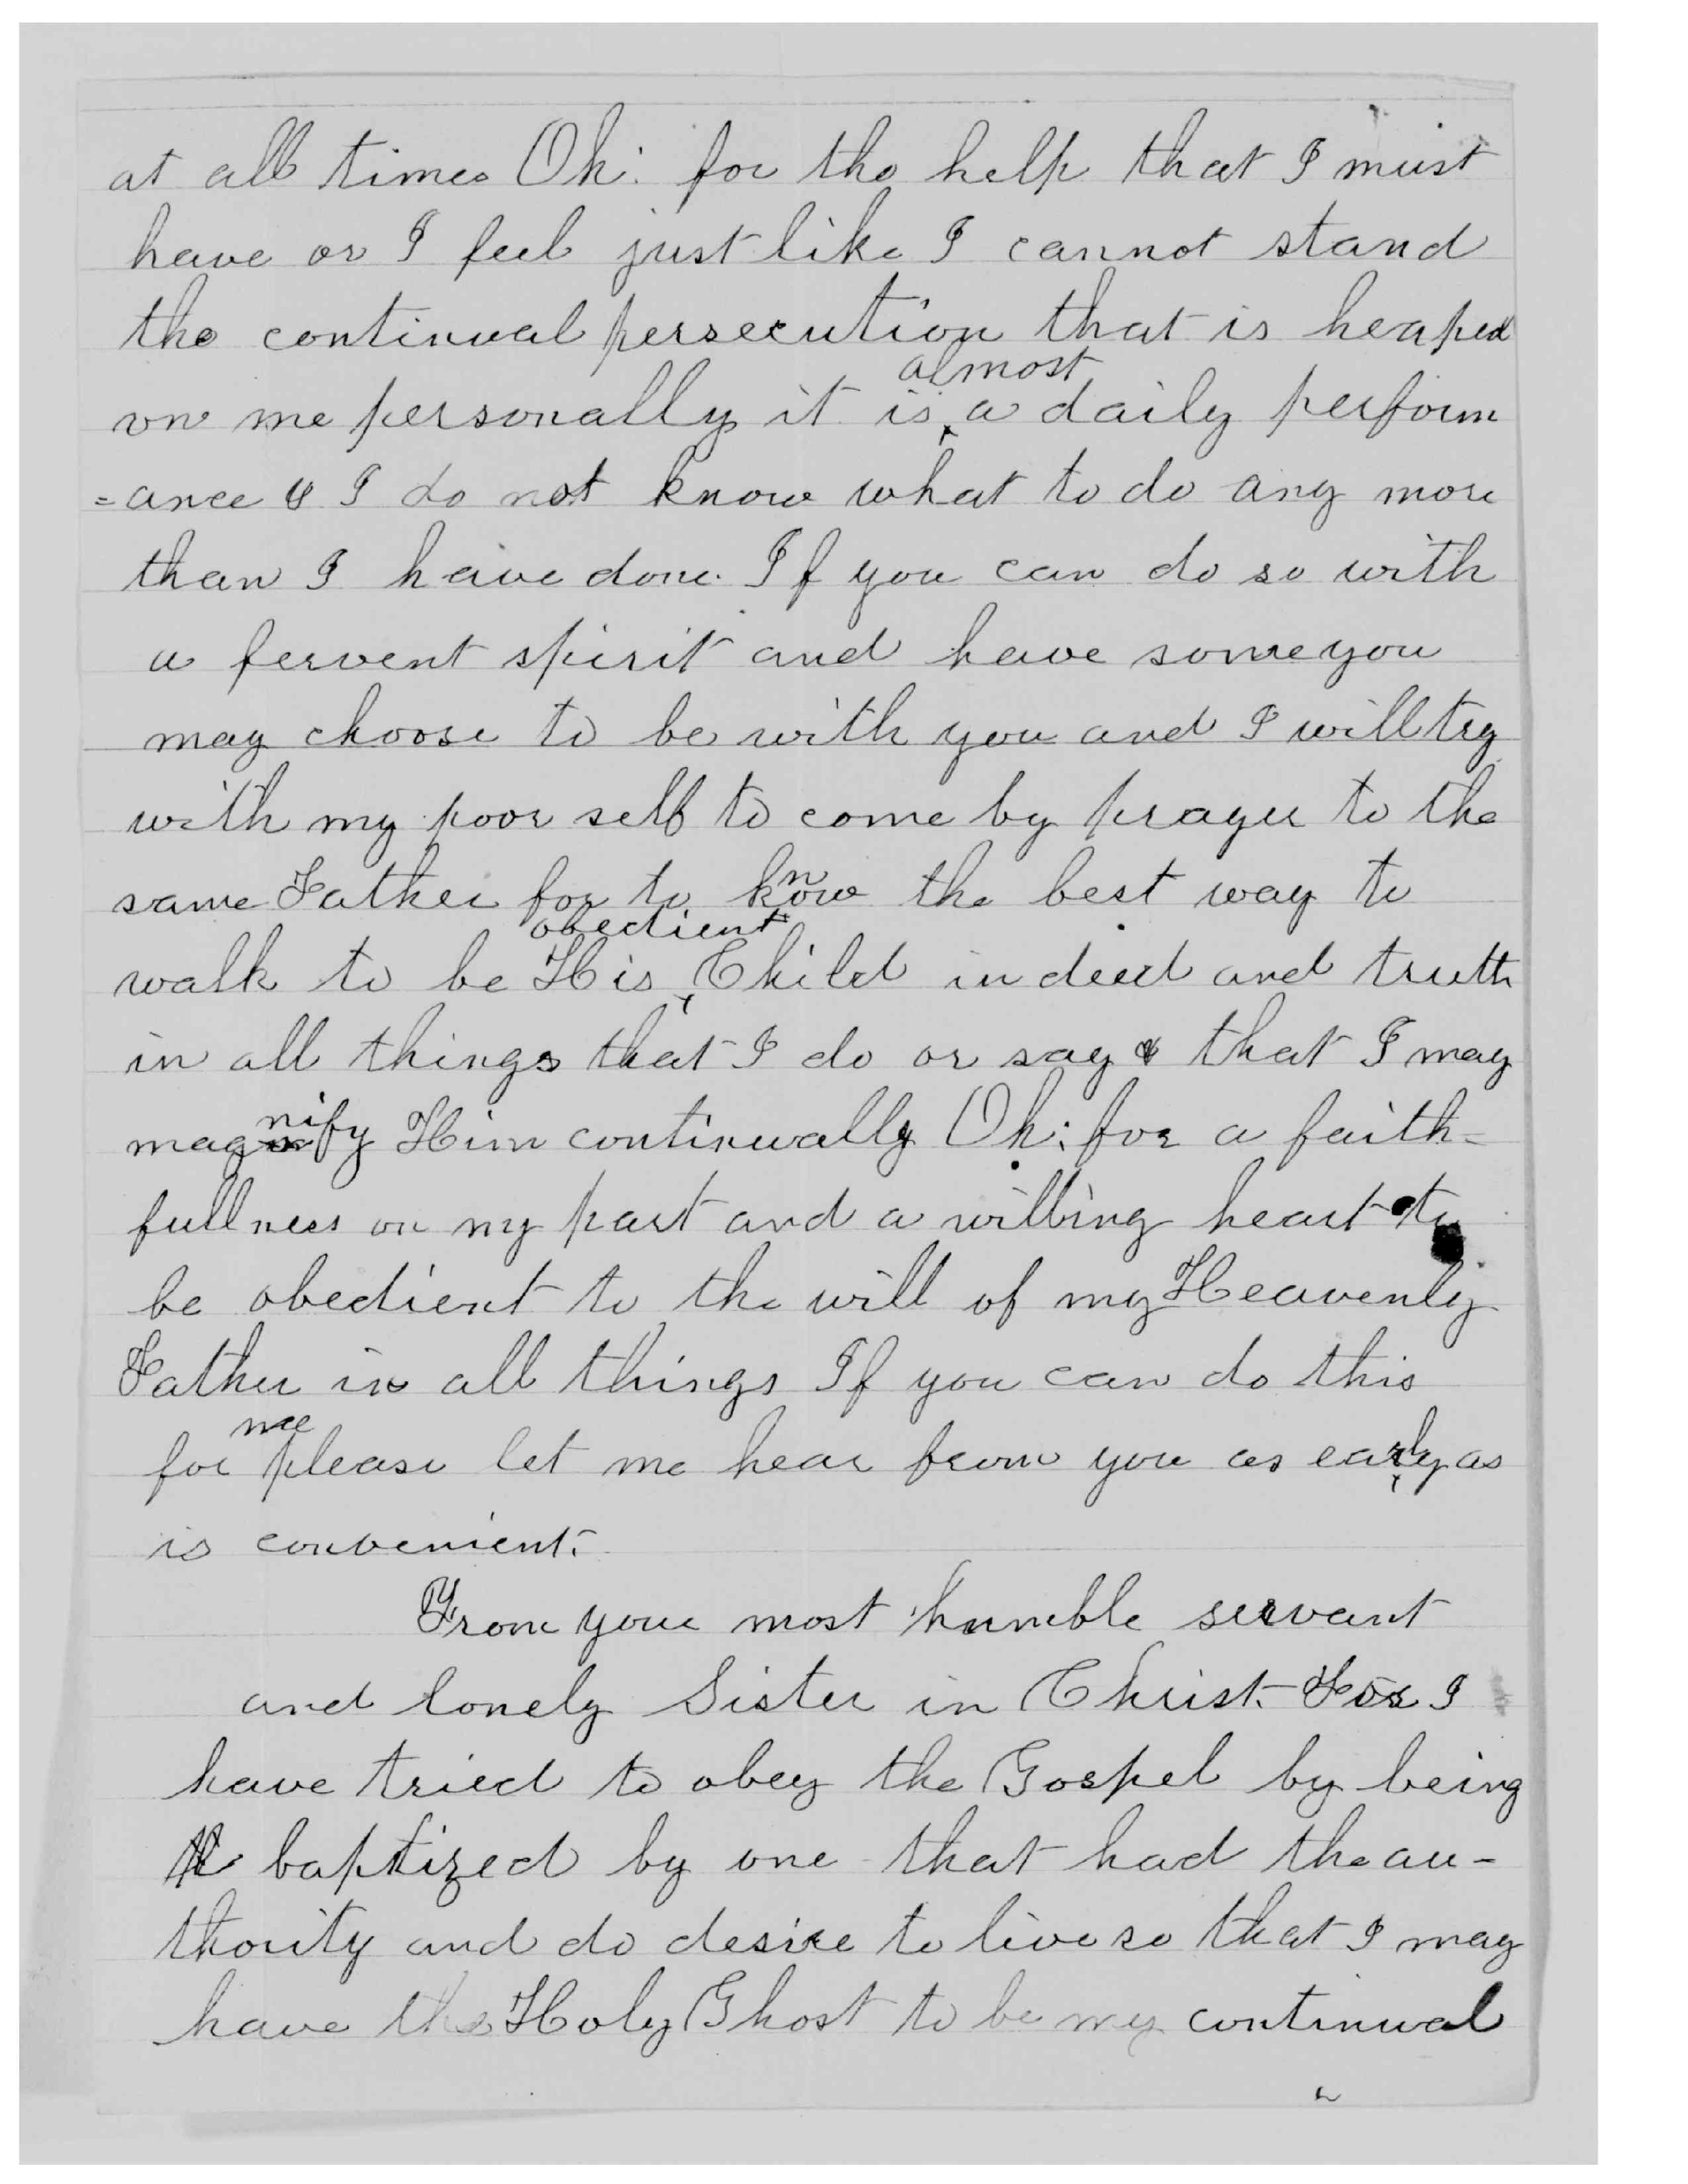 at all times Oh: for the help that I must
have or I feel just like I cannot stand
the continual persecution that is heaped
on me personally it is almost a daily perform
=ance & I do not know what to do any more
than I have done. If you can do so with
a fervent spirit and have some you
may choose to be with you and I will try
with my poor self to come by prayer to the
same Father for to know the best way to
walk to be His obedient Child in deed and truth
in all things that I do or say & that I may
magnify Him continually Oh: for a faith-
fullness on my part and a willing heart to
be obedient to the will of my Heavenly
Father in all things If you can do this
for me please let me hear from you as early as
is convenient.
From your most humble servant
and lonely Sister in Christ. For I
have tried to obey the Gospel by being
baptized by one that had the au-
thority and do desire to live so that I may
have the Holy Ghost to be my continual